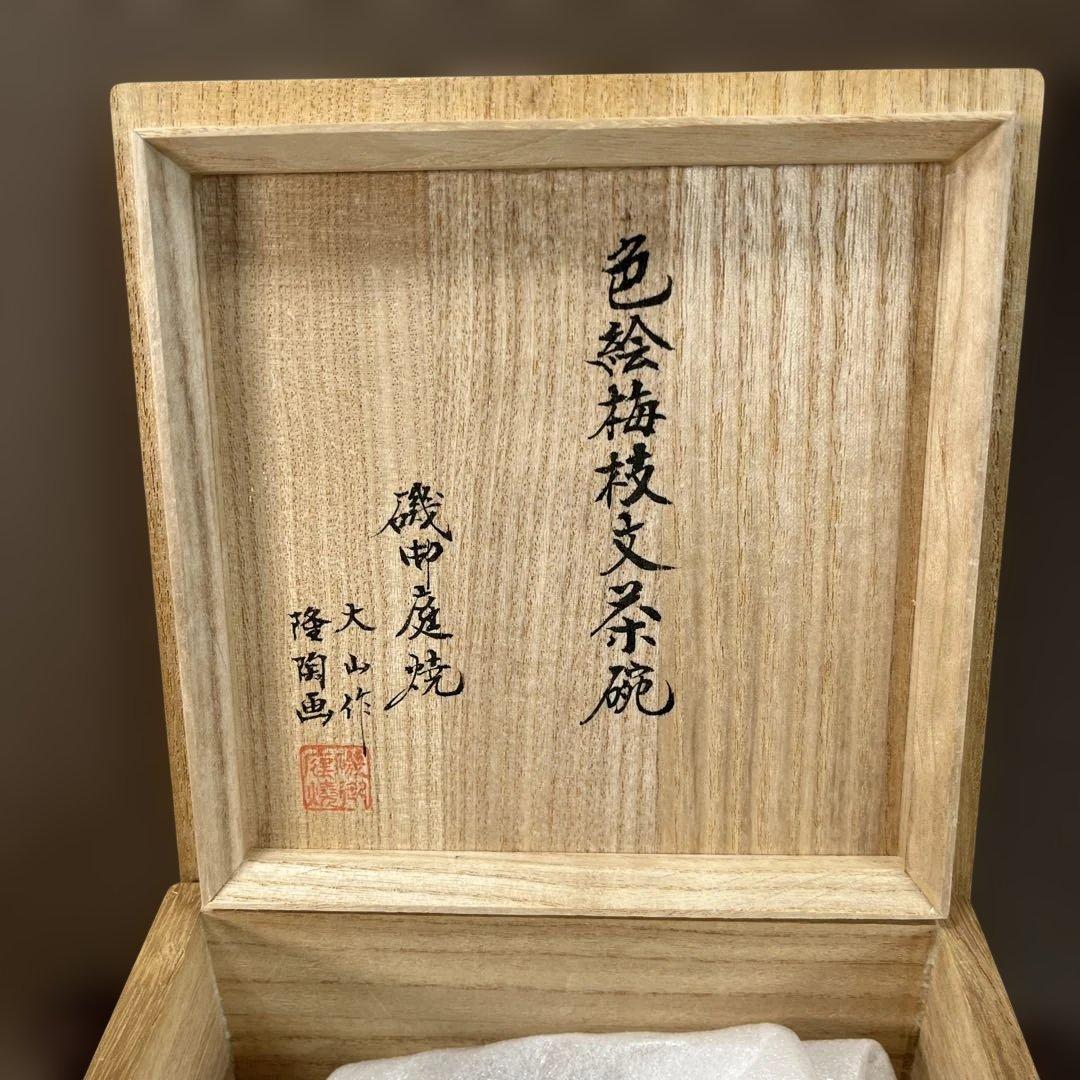 色絵梅枝文茶碗
磯御庭焼
大山作
隆陶画
磯御
庭焼